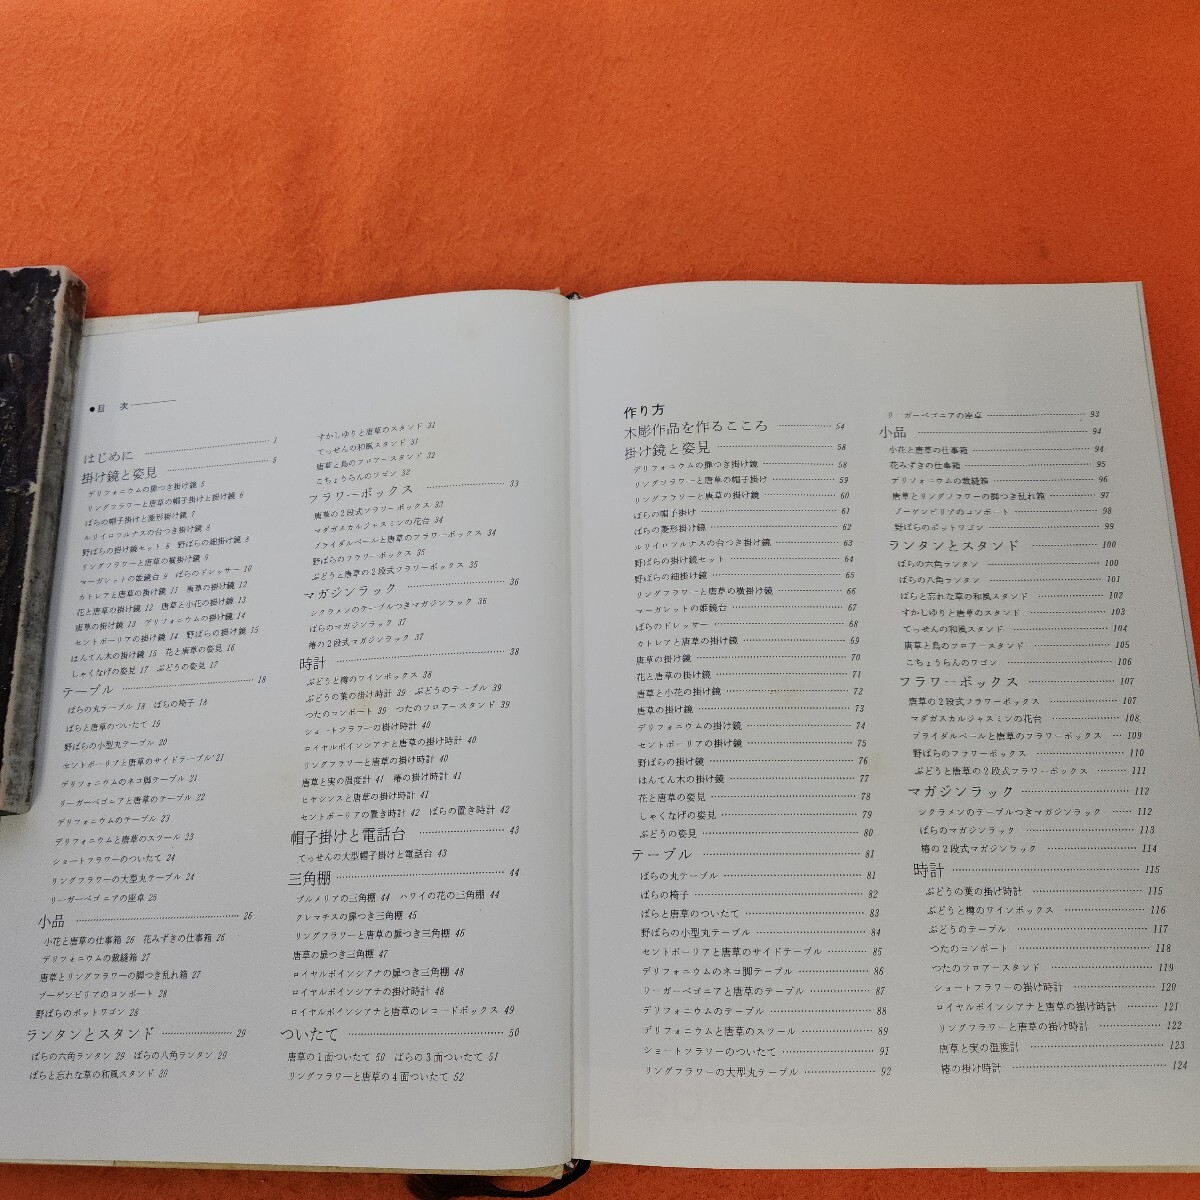 ●目 次
はじめに 1
掛け鏡と姿見 5
デリフォニウムの扉つき掛け鏡 5
リングフラワーと唐草の帽子掛けと掛け鏡 6
ばらの帽子掛けと菱形掛け鏡 7
ルリイロツルナスの台つき掛け鏡 8
野ばらの掛け鏡セット 8 野ばらの細掛け鏡 8
リングフラワーと唐草の横掛け鏡 9
マーガレットの姫鏡台 9 ばらのドレッサー 10
カトレアと唐草の掛け鏡 11 唐草の掛け鏡 12
花と唐草の掛け鏡 12 唐草と小花の掛け鏡 13
唐草の掛け鏡 13 デリフォニウムの掛け鏡 14
セントポーリアの掛け鏡 14 野ばらの掛け鏡 15
はんてん木の掛け鏡 15 花と唐草の姿見 16
しゃくなげの姿見 17 ぶどうの姿見 17
テーブル 18
ばらの丸テーブル 18 ばらの椅子 18
ばらと唐草のついたて 19
野ばらの小型丸テーブル 20
セントポーリアと唐草のサイドテーブル 21
デリフォニウムのネコ脚テーブル 21
リーガーベゴニアと唐草のテーブル 22
デリフォニウムのテーブル 23
デリフォニウムと唐草のスツール 23
ショートフラワーのついたて 24
リングフラワーの大型丸テーブル 24
リーガーベゴニアの座卓 25
小品 26
小花と唐草の仕事箱 26 花みずきの仕事箱 26
デリフォニウムの裁縫箱 27
唐草とリングフラワーの脚つき乱れ箱 27
ブーゲンビリアのコンポート 28
野ばらのポットワゴン 28
ランタンとスタンド 29
ばらの六角ランタン 29 ばらの八角ランタン 29
ばらと忘れな草の和風スタンド 30
すかしゆりと唐草のスタンド 31
てっせんの和風スタンド 31
唐草と鳥のフロアースタンド 32
こちょうらんのワゴン 32
フラワーボックス 33
唐草の2段式フラワーボックス 33
マダガスカルジャスミンの花台 34
ブライダルベールと唐草のフラワーボックス 34
野ばらのフラワーボックス 35
ぶどうと唐草の2段式フラワーボックス 35
マガジンラック 36
シクラメンのテーブルつきマガジンラック 36
ばらのマガジンラック 37
椿の2段式マガジンラック 37
時計 38
ぶどうと樽のワインボックス 38
ぶどうの葉の掛け時計 39 ぶどうのテーブル 39
つたのコンポート 39 つたのフロアースタンド 39
ショートフラワーの掛け時計 40
ロイヤルポインシアナと唐草の掛け時計 40
リングフラワーと唐草の掛け時計 40
唐草と実の温度計 41 椿の掛け時計 41
ヒヤシンスと唐草の掛け時計 41
セントポーリアの置き時計 42 ばらの置き時計 42
帽子掛けと電話台 43
てっせんの大型帽子掛けと電話台 43
三角棚 44
プルメリアの三角棚 44 ハワイの花の三角棚 44
クレマチスの扉つき三角棚 45
リングフラワーと唐草の扉つき三角棚 46
唐草の扉つき三角棚 47
ロイヤルポインシアナの扉つき三角棚 48
ロイヤルポインシアナの掛け時計 48
ロイヤルポインシアナと唐草のレコードボックス 49
ついたて 50
唐草の1面ついたて 50 ばらの3面ついたて 51
リングフラワーと唐草の4面ついたて 52
作り方
木彫作品を作るこころ 54
掛け鏡と姿見 58
デリフォニウムの扉つき掛け鏡 58
リングフラワーと唐草の帽子掛け 59
リングフラワーと唐草の掛け鏡 60
ばらの帽子掛け 61
ばらの菱形掛け鏡 62
ルリイロツルナスの台つき掛け鏡 63
野ばらの掛け鏡セット 64
野ばらの細掛け鏡 65
リングフラワーと唐草の横掛け鏡 66
マーガレットの姫鏡台 67
ばらのドレッサー 68
カトレアと唐草の掛け鏡 69
唐草の掛け鏡 70
花と唐草の掛け鏡 71
唐草と小花の掛け鏡 72
唐草の掛け鏡 73
デリフォニウムの掛け鏡 74
セントポーリアの掛け鏡 75
野ばらの掛け鏡 76
はんてん木の掛け鏡 77
花と唐草の姿見 78
しゃくなげの姿見 79
ぶどうの姿見 80
テーブル 81
ばらの丸テーブル 81
ばらの椅子 82
ばらと唐草のついたて 83
野ばらの小型丸テーブル 84
セントポーリアと唐草のサイドテーブル 85
デリフォニウムのネコ脚テーブル 86
リーガーベゴニアと唐草のテーブル 87
デリフォニウムのテーブル 88
デリフォニウムと唐草のスツール 89
ショートフラワーのついたて 91
リングフラワーの大型丸テーブル 92
リーガーベゴニアの座卓 93
小品 94
小花と唐草の仕事箱 94
花みずきの仕事箱 95
デリフォニウムの裁縫箱 96
唐草とリングフラワーの脚つき乱れ箱 97
ブーゲンビリアのコンポート 98
野ばらのポットワゴン 99
ランタンとスタンド 100
ばらの六角ランタン 100
ばらの八角ランタン 101
ばらと忘れな草の和風スタンド 102
すかしゆりと唐草のスタンド 103
てっせんの和風スタンド 104
唐草と鳥のフロアースタンド 105
こちょうらんのワゴン 106
フラワーボックス 107
唐草の2段式フラワーボックス 107
マダガスカルジャスミンの花台 108
ブライダルベールと唐草のフラワーボックス 109
野ばらのフラワーボックス 110
ぶどうと唐草の2段式フラワーボックス 111
マガジンラック 112
シクラメンのテーブルつきマガジンラック 112
ばらのマガジンラック 113
椿の2段式マガジンラック 114
時計 115
ぶどうの葉の掛け時計 115
ぶどうと樽のワインボックス 116
ぶどうのテーブル 117
つたのコンポート 118
つたのフロアースタンド 119
ショートフラワーの掛け時計 120
ロイヤルポインシアナと唐草の掛け時計 121
リングフラワーと唐草の掛け時計 122
唐草と実の温度計 123
椿の掛け時計 124